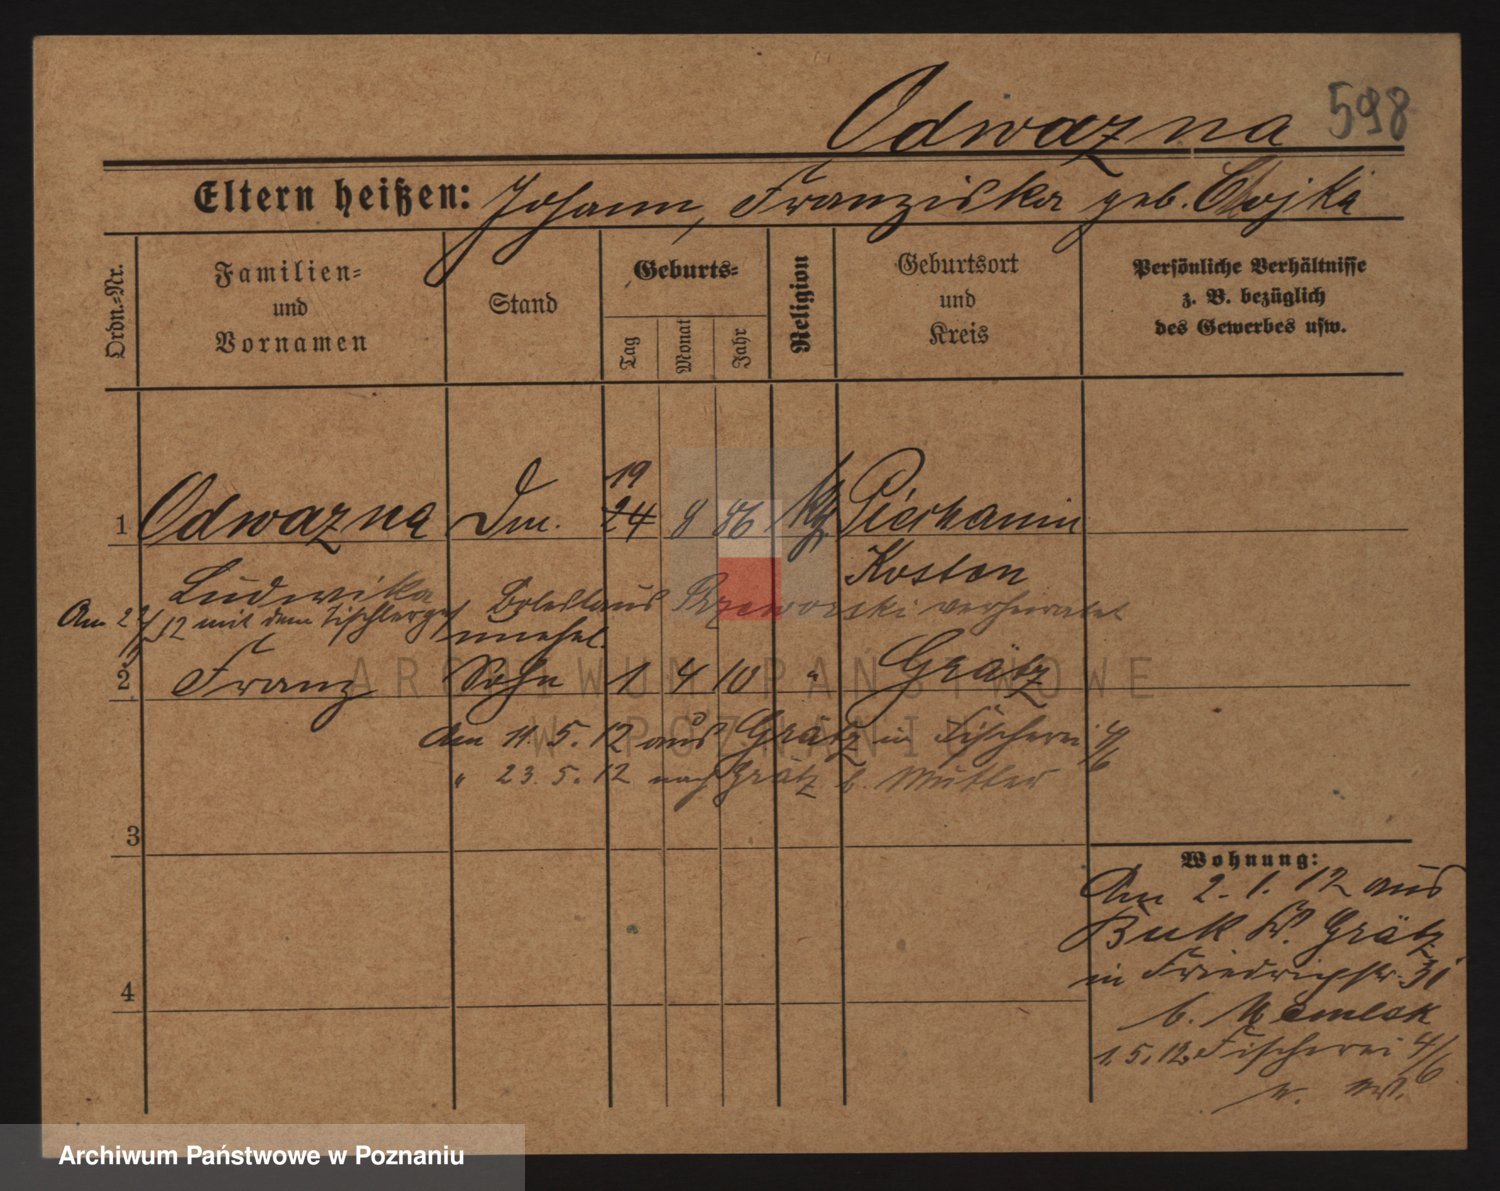 Odwazna 598
Eltern heißen: Johann, Franziska geb.
Ordn.-Nr.
Familien-
und
Vornamen
Stand
Geburts-
Tag
Monat
Jahr
Religion
Geburtsort
und
Kreis
Persönliche Verhältnisse
z. B. bezüglich
des Gewerbes usw.
19
1 Odwazna Dm. 24 8 86
Ludwika Kosten
Am 12 mit dem Tischlerges Boleslaus verheiratet
unehel.
2 Franz Sohn 1 4 10 " Grätz
ARCHIWUM PAŃSTWOWE
W POZNANIU
Am 11. 5. 12 aus Grätz in Fischerei 4/6
" 23. 5. 12 nach Grätz b. Mutter
3
Wohnung:
Am 2. 1. 12 aus
Buk Grätz
in Friedrichstr. 31
4
b.
1. 5. 12 Fischerei 4/6
Archiwum Państwowe w Poznaniu